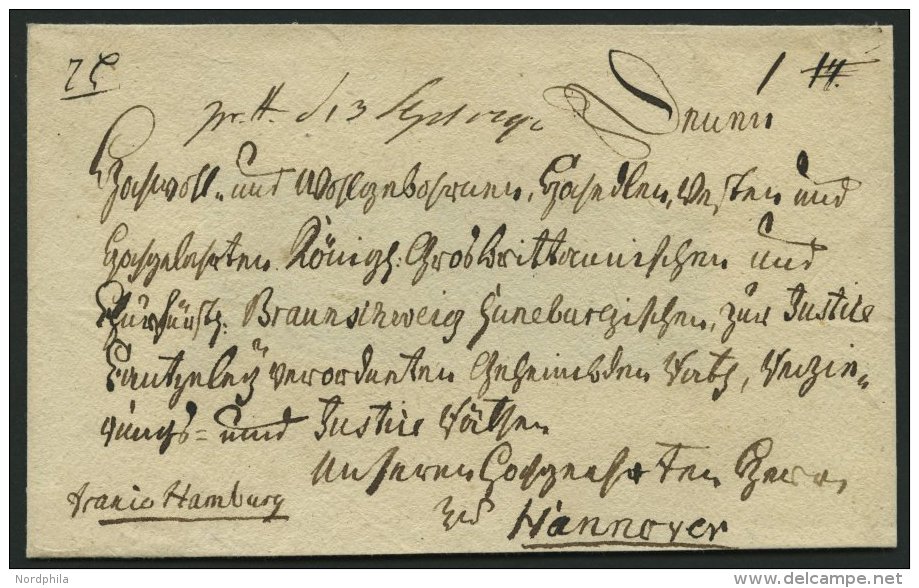 Denen
Hochwoll- und Wollgebohrnen, Hochedlen, Vesten und
Hochgelahrten Königl: Grosbrittannischen und
Churfürstl: Braunschweig Lüneburgischen, zur Justice
Cantzeley verordneten Geheimbden Rath, Regie-
rungs- und Justice Räthen
Unseren Hochgeehrten Herrn
zu Hannover
franco Hamburg
Nordphila
delcampe.net